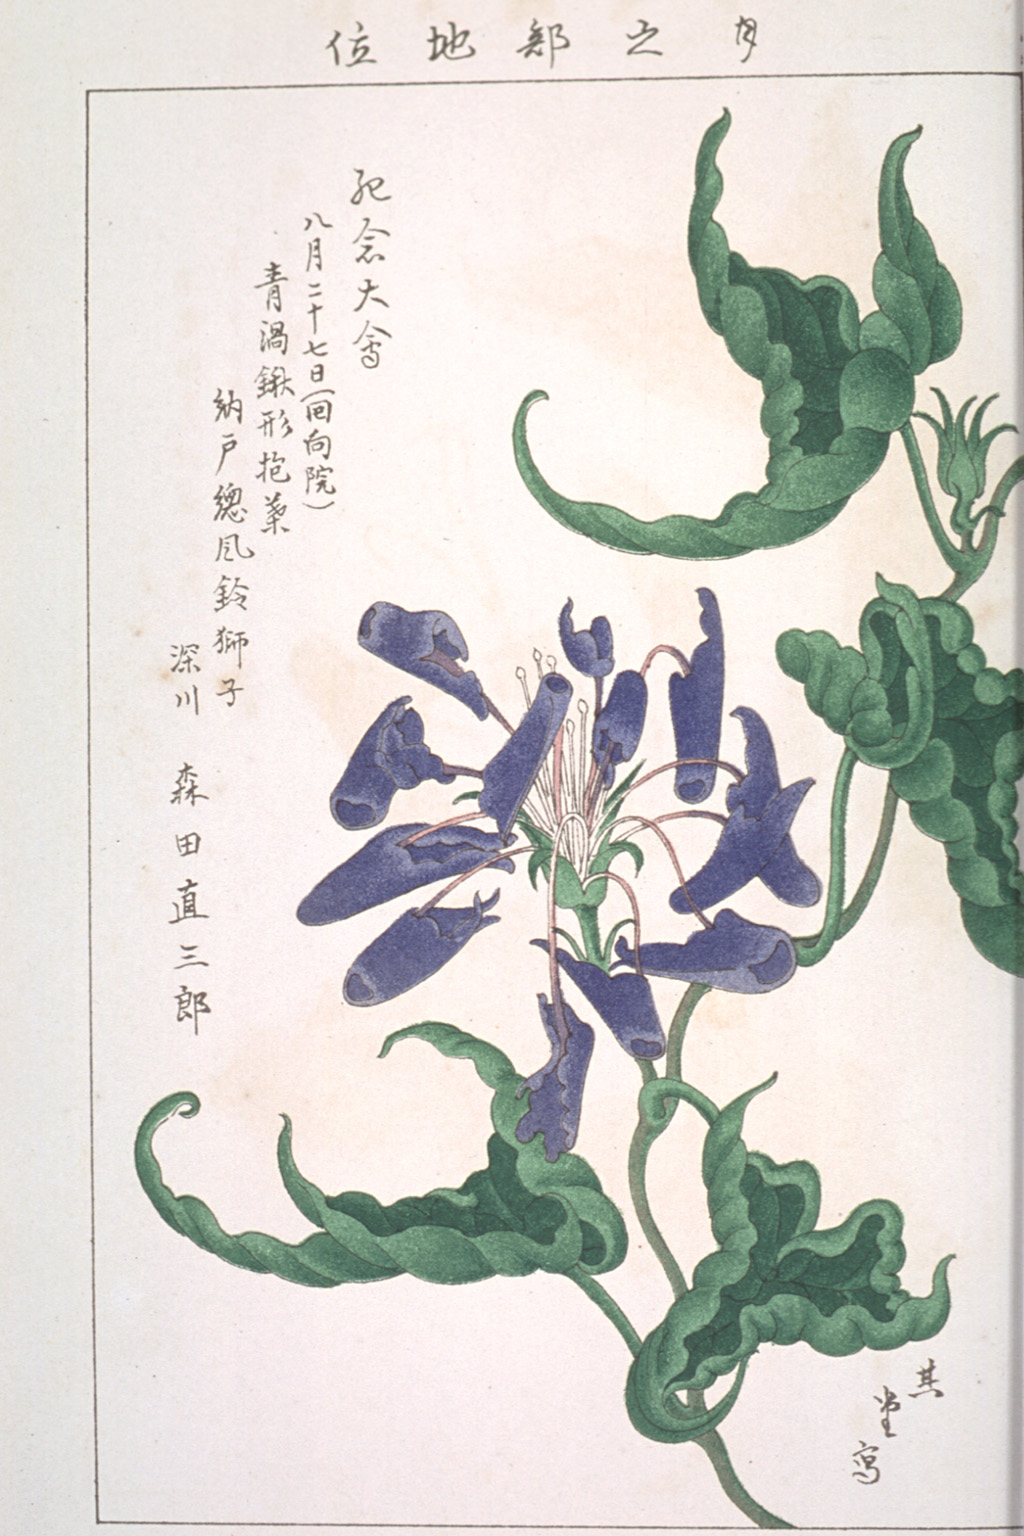 月之部地位
紀念大會
八月二十七日（回向院）
青渦鍬形抱葉
納戸總風鈴獅子
深川 森田直三郎
其堂寫